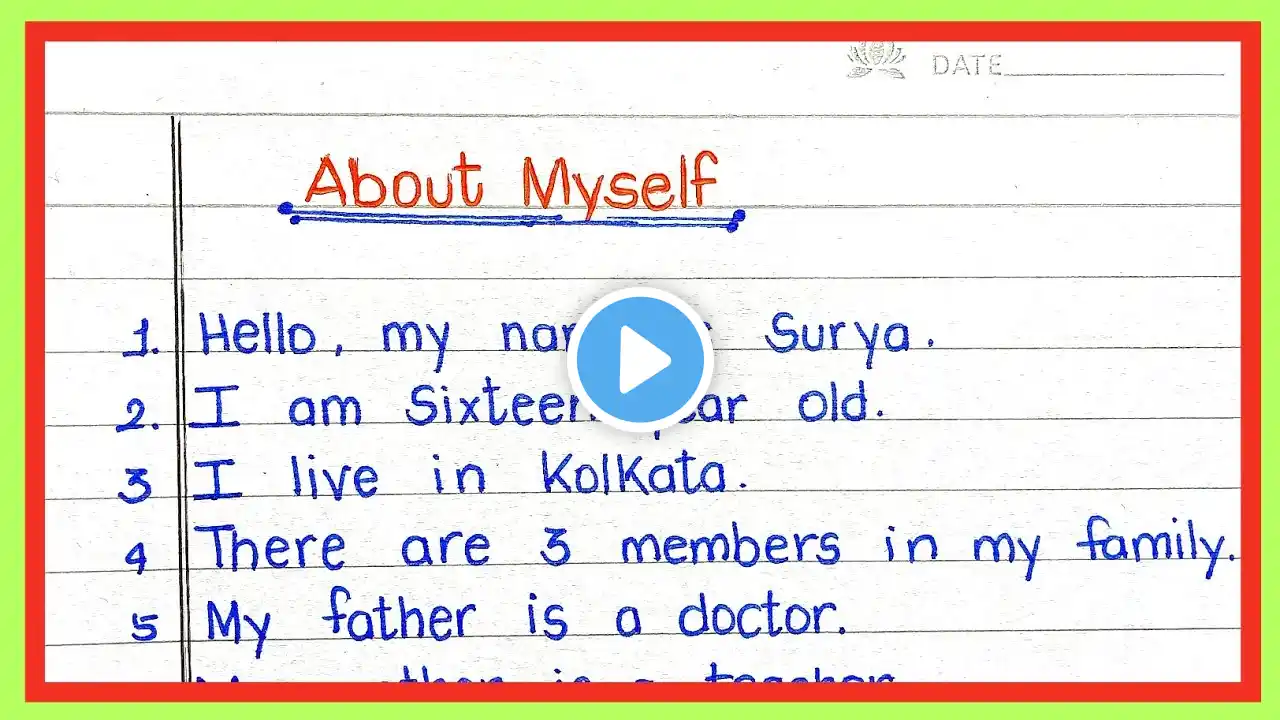 DATE
About Myself
1. Hello, my name is Surya.
2. I am Sixteen year old.
3 I live in Kolkata.
4 There are 3 members in my family.
5 My father is a doctor.
My mother is a teacher